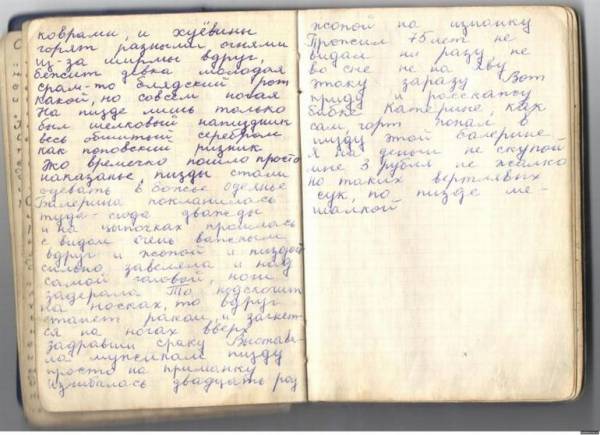 коврами, и хуёвины
горят разными огнями
из-за ширмы вдруг,
бежит девка молодая
срам-то блядский рот
какой, но совсем погая
На пизде лишь только
был шелковый напиздник
весь обшитый серебром
как поповский ризник
Эко времечко пошло просто
наказанье, пизды стали
одевать в божье оделнье
Балерина поклонилась
туда-сюда дважды
и на цыпочках прошлась
с видом очень важным
вдруг и жопой и пиздой
сильно завеляла и над
самой головой, ноги
задерала То подскочит
на носках, то вдруг
станет раком, и загнет-
ся на ногах вверх
задравши сраку Выстави-
ла мужикам пизду
просто на приманку
изгибалась двадцать раз
жопой на изнанку
Прожил 75 лет не
видал ни разу не
во сне не на яву
этаку заразу Вот
приду и расскажу
бабке Катерине, как
сам, чорт попал в
пизду этой балерине
Я на деньги не скупой
мне 3 рубля не жалко
но таких вертлявых
сук, по пизде ме-
шалкой